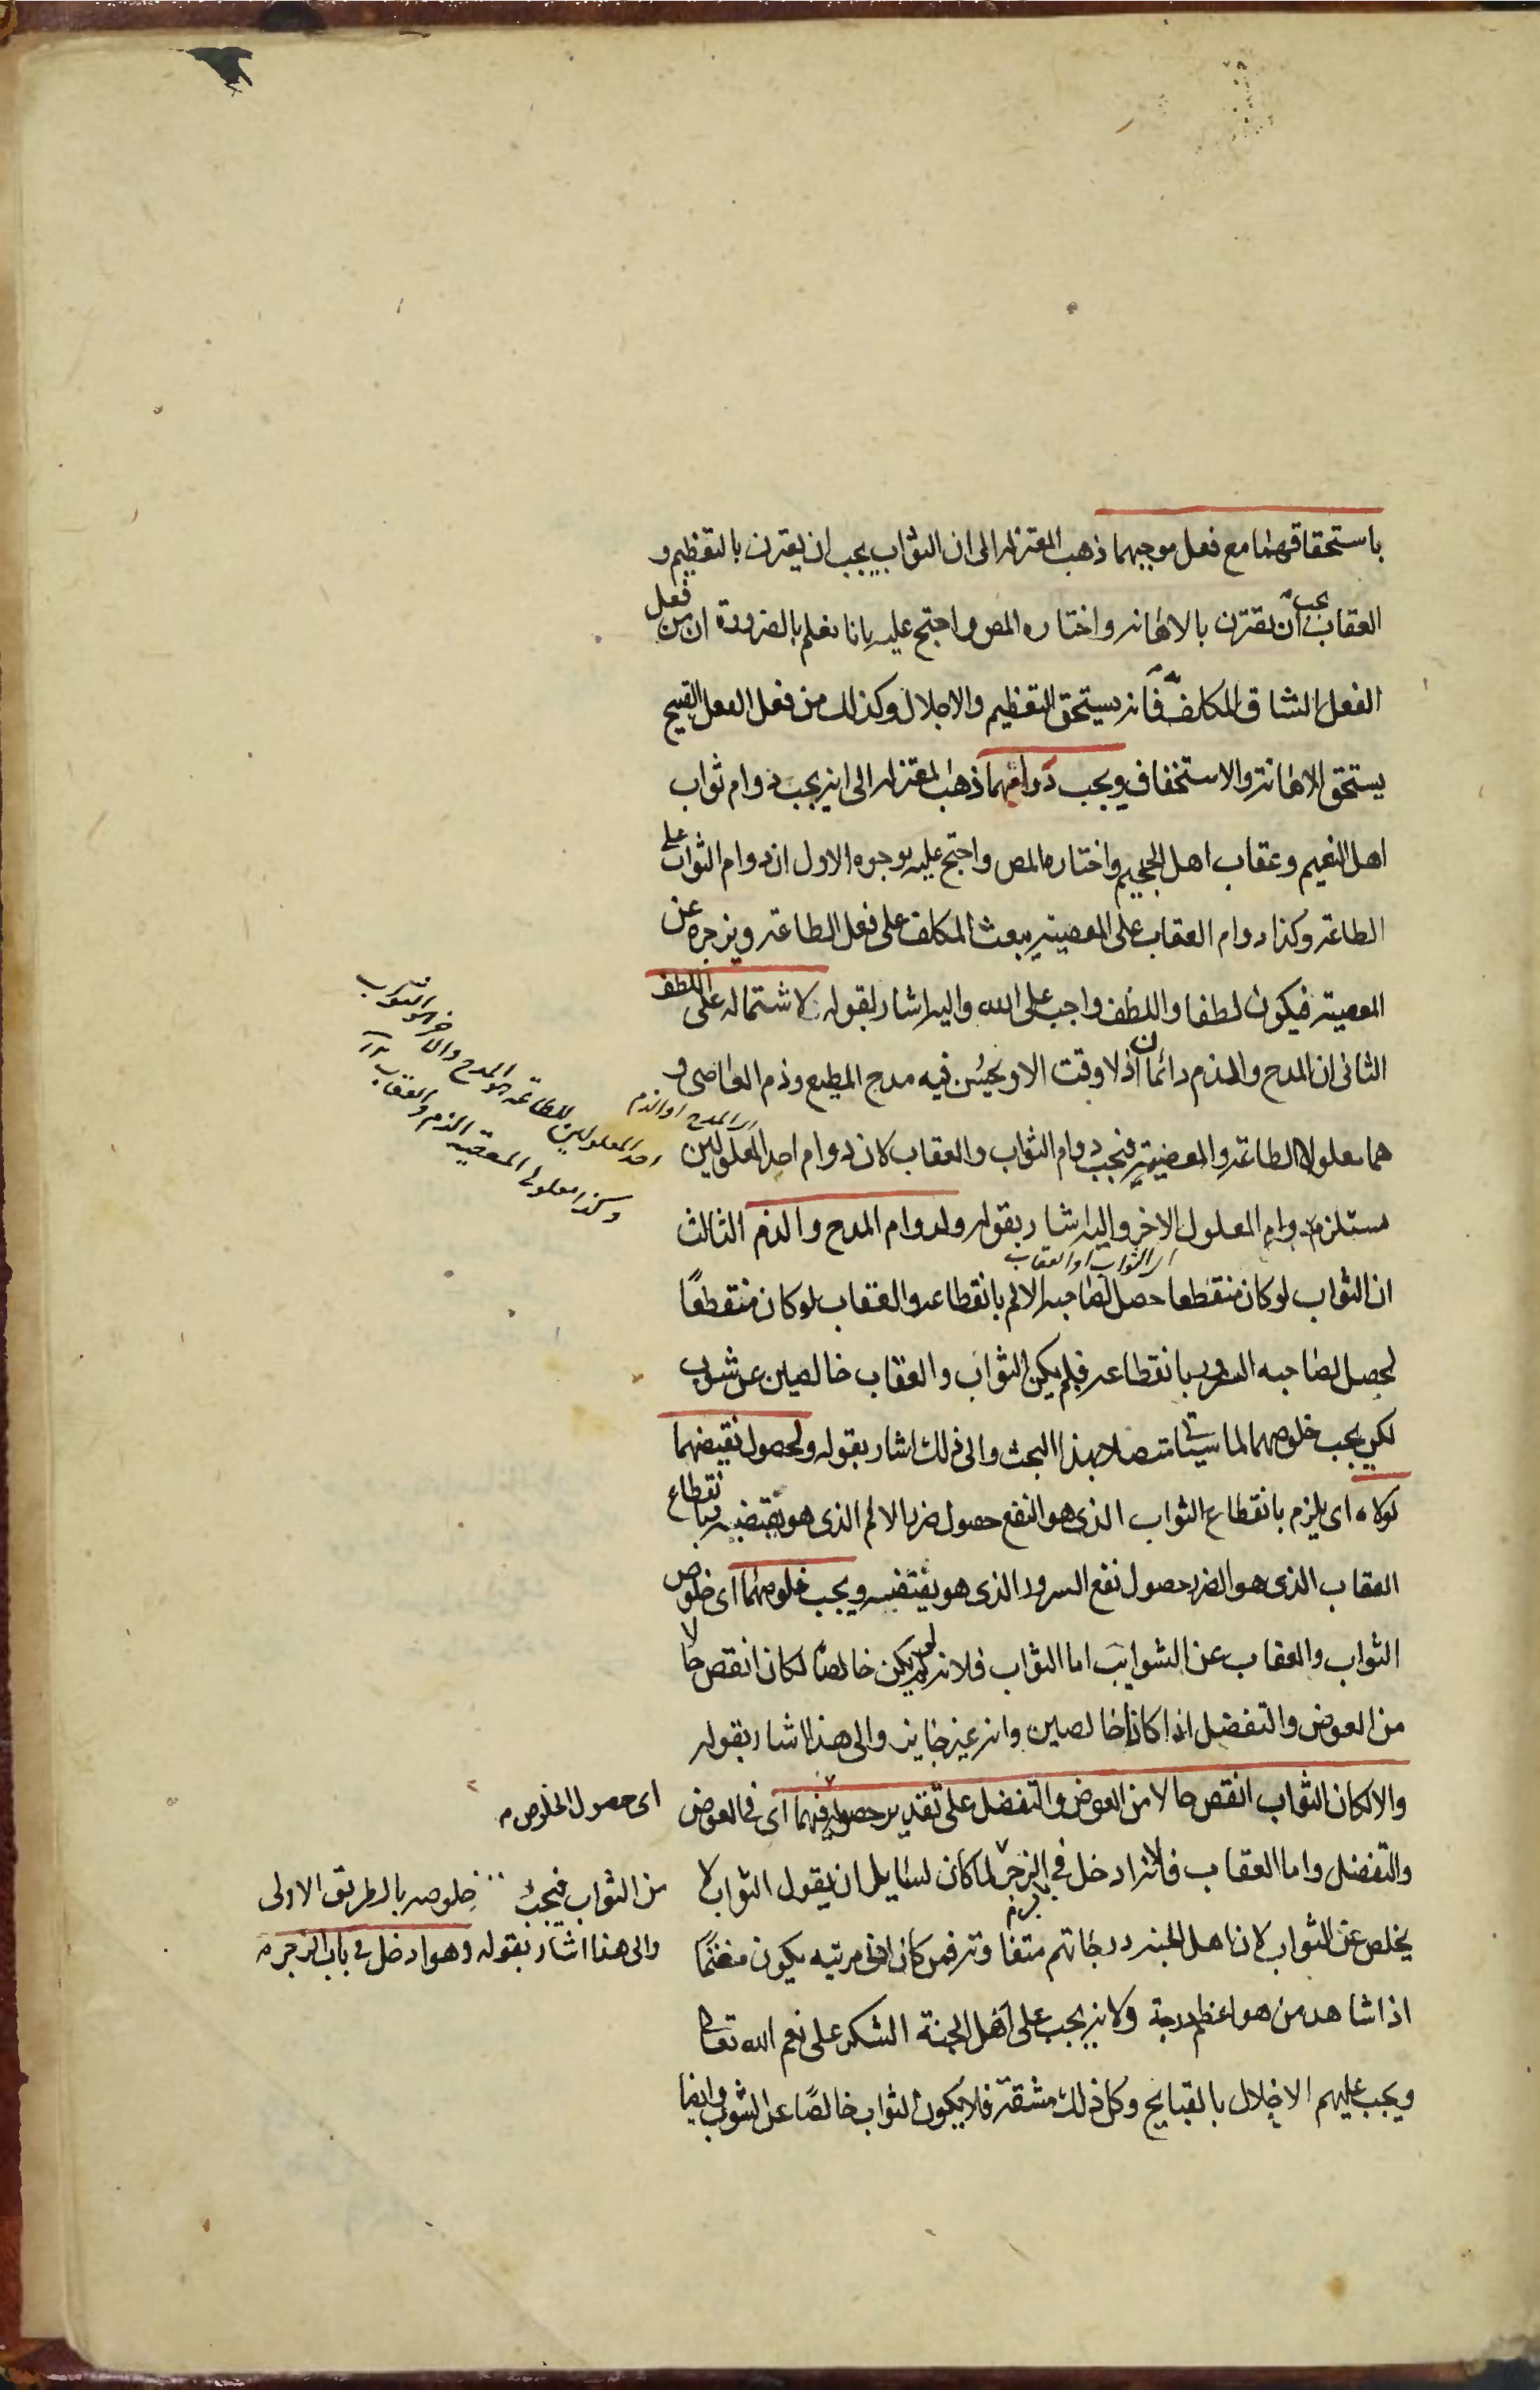 باستحقاقهما مع فعل موجبهما ذهب المعتزله الى ان الثواب يجب ان يقترن بالتعظيم و
العقاب يجب ان يقترن بالاهانه واختاره المص واحتج عليه بانا نعلم بالضرورة ان من فعل
الفعل الشاق المكلف به فانه يستحق التعظيم والاجلال وكذلك من فعل الفعل القبيح
يستحق الاهانة والاستخفاف ويجب دوامهما ذهب المعتزله الى انه يجب دوام ثواب
اهل النعيم وعقاب اهل الجحيم واختاره المص واحتج عليه بوجوه الاول ان دوام الثواب على
الطاعة وكذا دوام العقاب على المعصية يبعث المكلف على فعل الطاعة ويزجره عن
المعصية فيكون لطفا واللطف واجب على الله واليه اشار بقوله لاشتماله على اللطف
الثانى ان المدح والذم دائمان اذ لا وقت الا ويحسن فيه مدح المطيع وذم العاصى و
هما معلولا الطاعة والمعصية فيجب دوام الثواب والعقاب لان دوام احد المعلولين
مستلزم دوام المعلول الاخر واليه اشار بقوله ولدوام المدح والذم الثالث
ان الثواب لو كان منقطعا حصل لصاحبه الالم بانقطاعه والعقاب لو كان منقطعًا
لحصل لصاحبه السرور بانقطاعه فلم يكن الثواب والعقاب خالصين عن شوب
لكن يجب خلوصهما لما سيأتى متصلا بهذا البحث والى ذلك اشار بقوله ولحصول نقيضهما
لولاه اى يلزم بانقطاع الثواب الذى هو النفع حصول ضرر الالم الذى هو نقيضه وبانقطاع
العقاب الذى هو الضرر حصول نفع السرور الذى هو نقيضه ويجب خلوصهما اى خلوص
الثواب والعقاب عن الشوايب اما الثواب فلانه لو لم يكن خالصًا لكان انقص حالا
من العوض والتفضل اذا كانا خالصين وانه غير جايز والى هذا اشار بقوله
والا لكان الثواب انقص حالا من العوض والتفضل على تقدير حصوله فيهما اى فى العوض
والتفضل واما العقاب فلانه ادخل فى الزجر لما كان لسايل ان يقول الثواب لا
يخلص عن الشواب لان اهل الجنه درجاتهم متفاوته فمن كان ادنى مرتبه يكون مغتمًا
اذا شاهد من هو اعظم درجة ولانه يجب على اهل الجنة الشكر على نعم الله تعالى
ويجب عليهم الاخلال بالقبايح وكل ذلك مشقة فلا يكون الثواب خالصًا عن الشوب وايضا
اى المدح او الذم
احد المعلولين للطاعة هو المدح والاخر هو الثواب
وكذا معلولا المعصية الذم والعقاب
اى الثواب او العقاب
اى حصول الخلوص
من الثواب فيجب خلوصه بالطريق الاولى
والى هذا اشار بقوله وهو ادخل فى باب الزجر